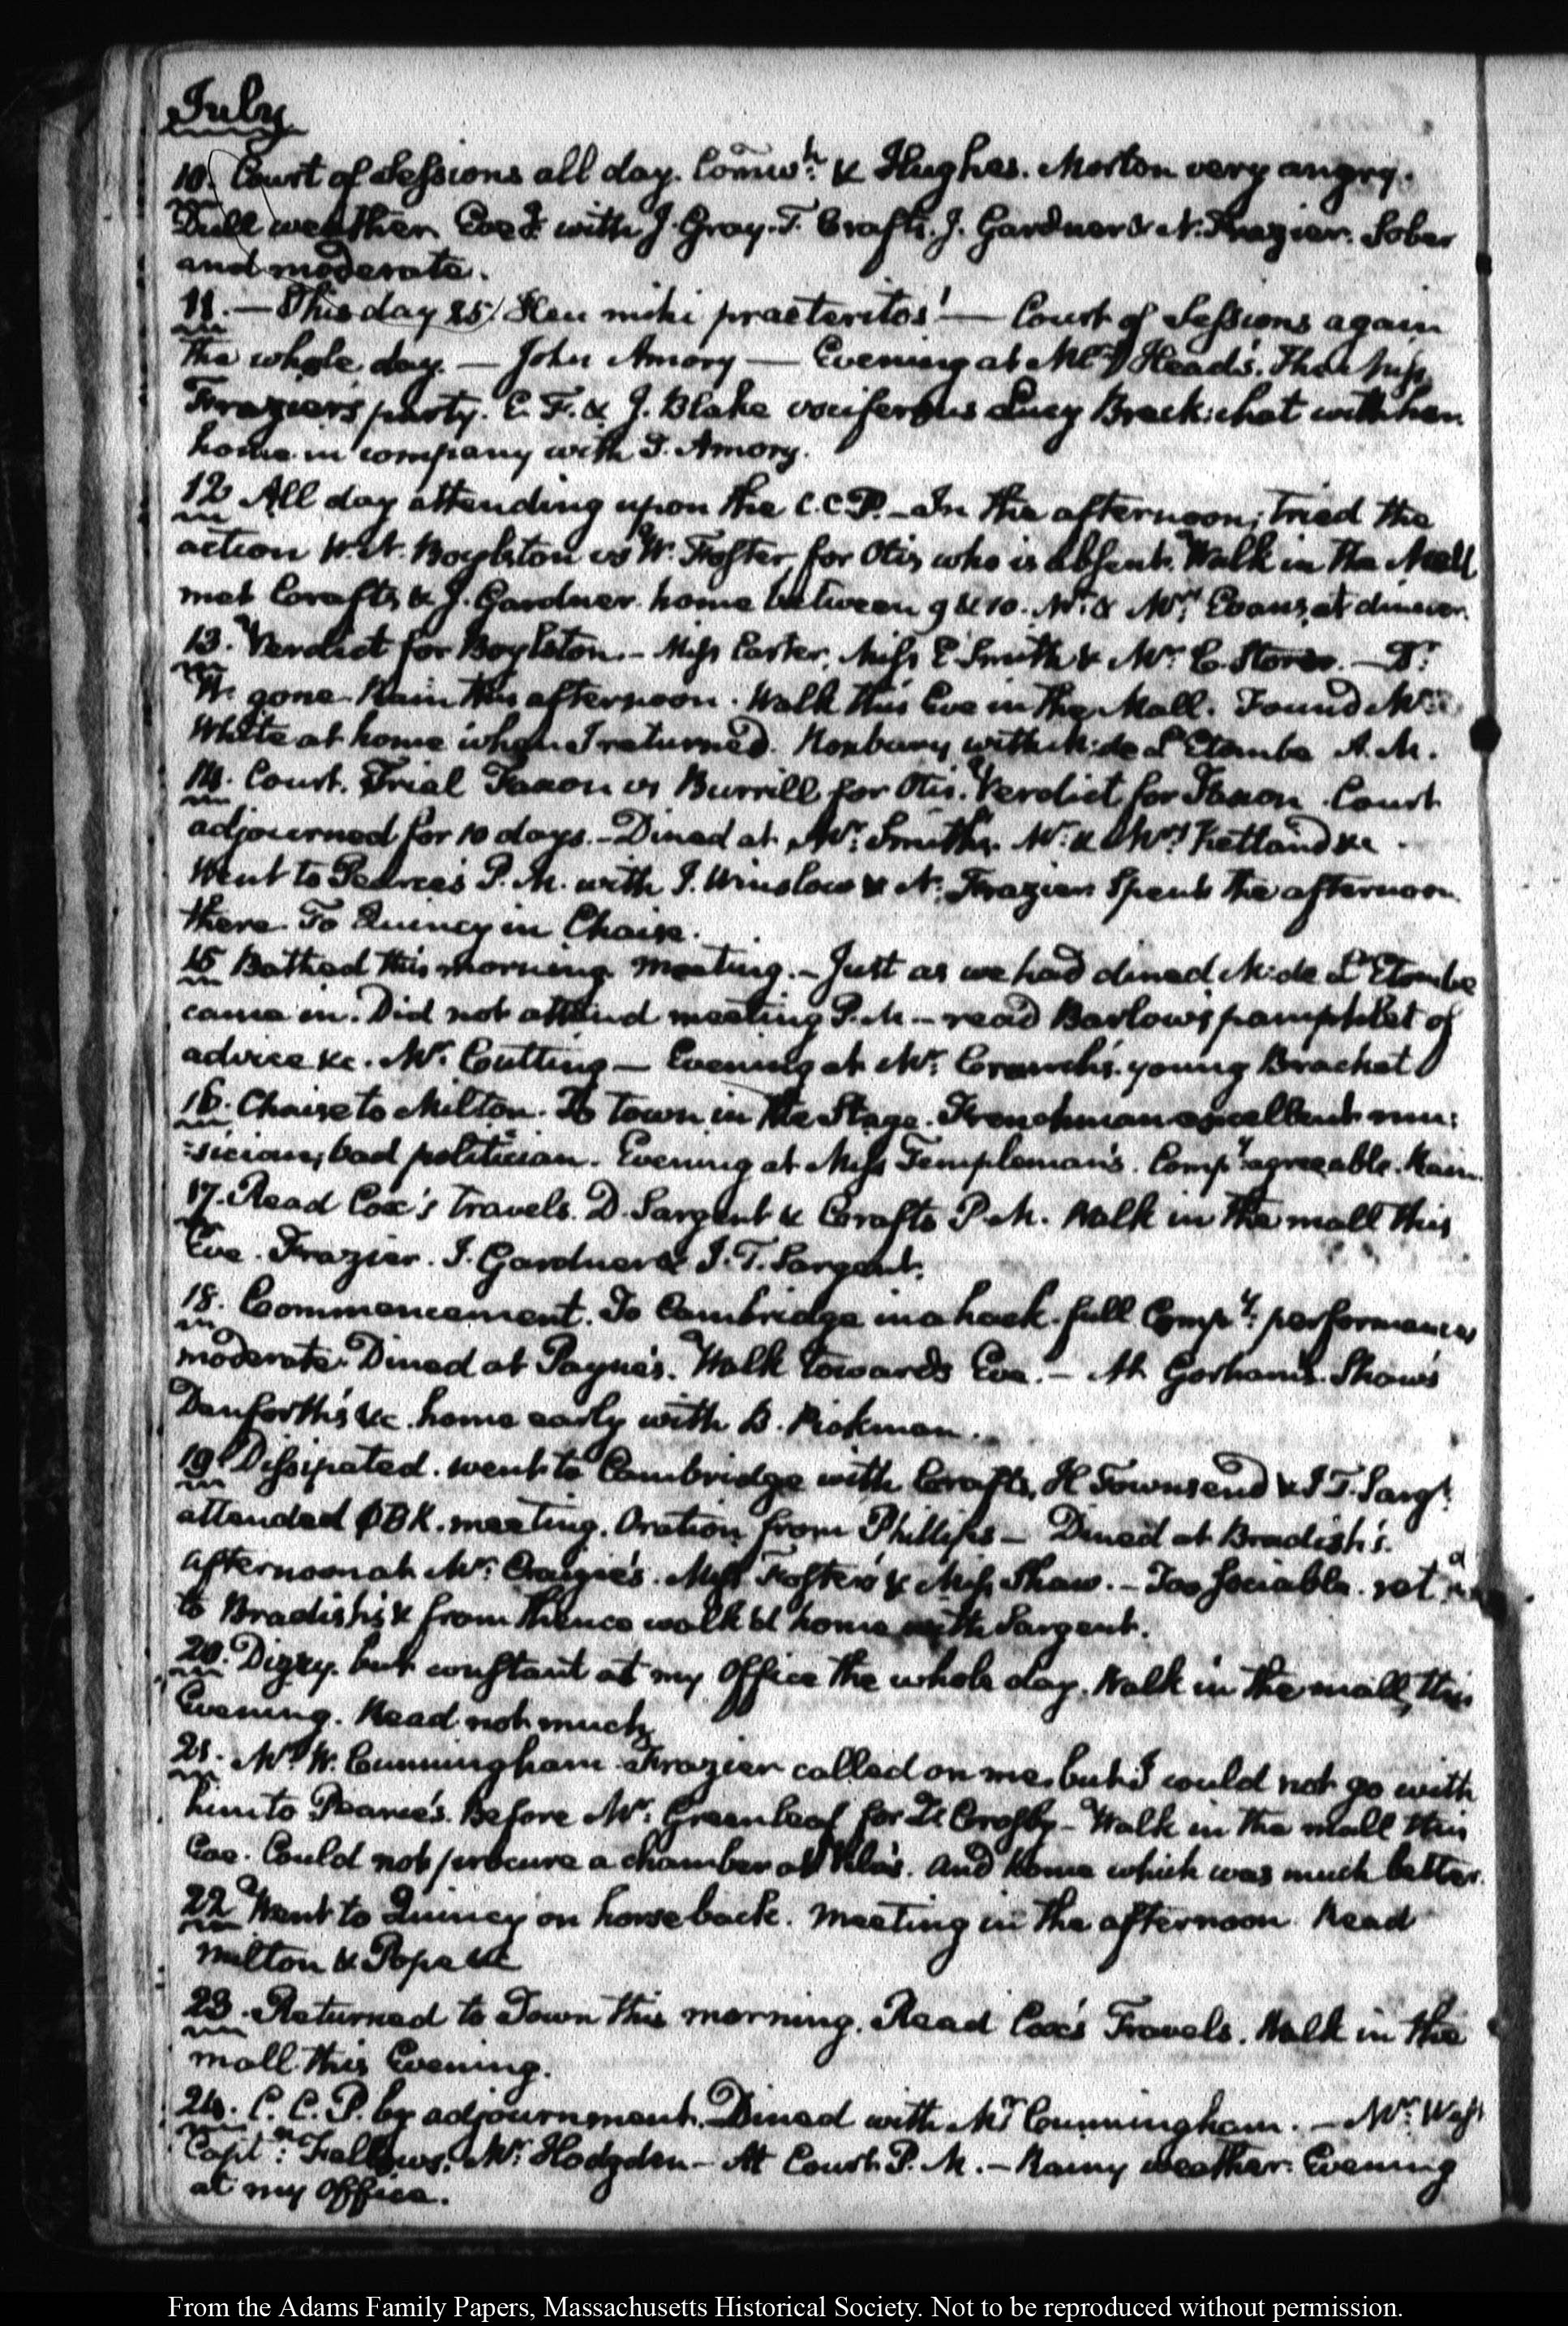 July
10. Court of Sessions all day. Com̃wh. & Hughes. Morton very angry.
Dull weather Eveg. with J. Gray. T. Crafts. J. Gardner & N. Frazier. Sober
and moderate.
11. — This day 25. Heu mihi praeteritos! — Court of Sessions again
the whole day. — John Amory — Evening at Mrs. Head's. The Miss
Frazier's party. E. F. & J. Blake vociferous Lucy Breck: chat with her
home in company with J. Amory.
12 All day attending upon the C.C.P. — In the afternoon; tried the
action W. N. Boylston vs W. Foster, for Otis who is absent. Walk in the Mall
met Crafts & J. Gardner. home between 9 & 10. Mr. & Mrs. Evans, at dinner.
13. Verdict for Boylston. — Miss Carter, Miss E. Smith & Mr. C. Storer. — Dr.
W. gone. Rain this afternoon. Walk this Eve in the Mall. Found Mr.
White at home when I returned. Roxbury with M: de L'Etombe A. M.
14. Court. Trial Faxon vs Burrill for Otis. Verdict for Faxon. Court
adjourned for 10 days. — Dined at Mr. Smith's. Mr. & Mrs. Ketland &c
Went to Pearce's P. M. with J. Winslow & N. Frazier. Spent the afternoon
there. To Quincy in Chaise.
15 Bathed this morning. meeting. — Just as we had dined M: de L'Etombe
came in. Did not attend meeting P. M — read Barlow's pamphlet of
advice &c. Mr. Cutting — Evening at Mr. Cranch's. young Bracket
16. Chaise to Milton. To town in the Stage. Frenchman excellent mu:
:sician; bad politician. Evening at Miss Templeman's. Compy. agreeable. Rain.
17. Read Cox's travels. D. Sargent & Crafts P. M. Walk in the mall this
Eve. Frazier. J. Gardner & J. T. Sargent.
18. Commencement. To Cambridge in a hack. full Compy. performances
moderate. Dined at Payne's. Walk towards Eve. — At Gorham's. Shaw's
Danforth's &c. home early with B. Pickman.
19. Dissipated. went to Cambridge with Crafts, H Townsend & J T. Sargt.
attended ΦBK. meeting. Oration from Phillips — Dined at Bradish's.
afternoon at Mr. Craigie's. Miss Foster's & Miss Shaw. — Too sociable. retd
to Bradish's & from thence walk'd home with Sargent.
20. Dizzy. but constant at my Office the whole day. Walk in the mall, this
Evening. Read not much
21. Mr. W. Cunningham. Frazier called on me, but I could not go with
him to Pearce's. Before Mr. Greenleaf for Crosby — Walk in the mall this
Eve. Could not procure a chamber at and home which was much better.
22 Went to Quincy on horseback. Meeting in the afternoon. Read
Milton & Pope &c
23. Returned to Town this morning. Read Cox's Travels. Walk in the
mall this Evening.
24. C. C. P. by adjournment. Dined with Mr Cunningham. — Mr. West
Captn. Fellows. Mr. Hodgdon — At Court P. M. — Rainy weather. Evening
at my Office.
From the Adams Family Papers, Massachusetts Historical Society. Not to be reproduced without permission.